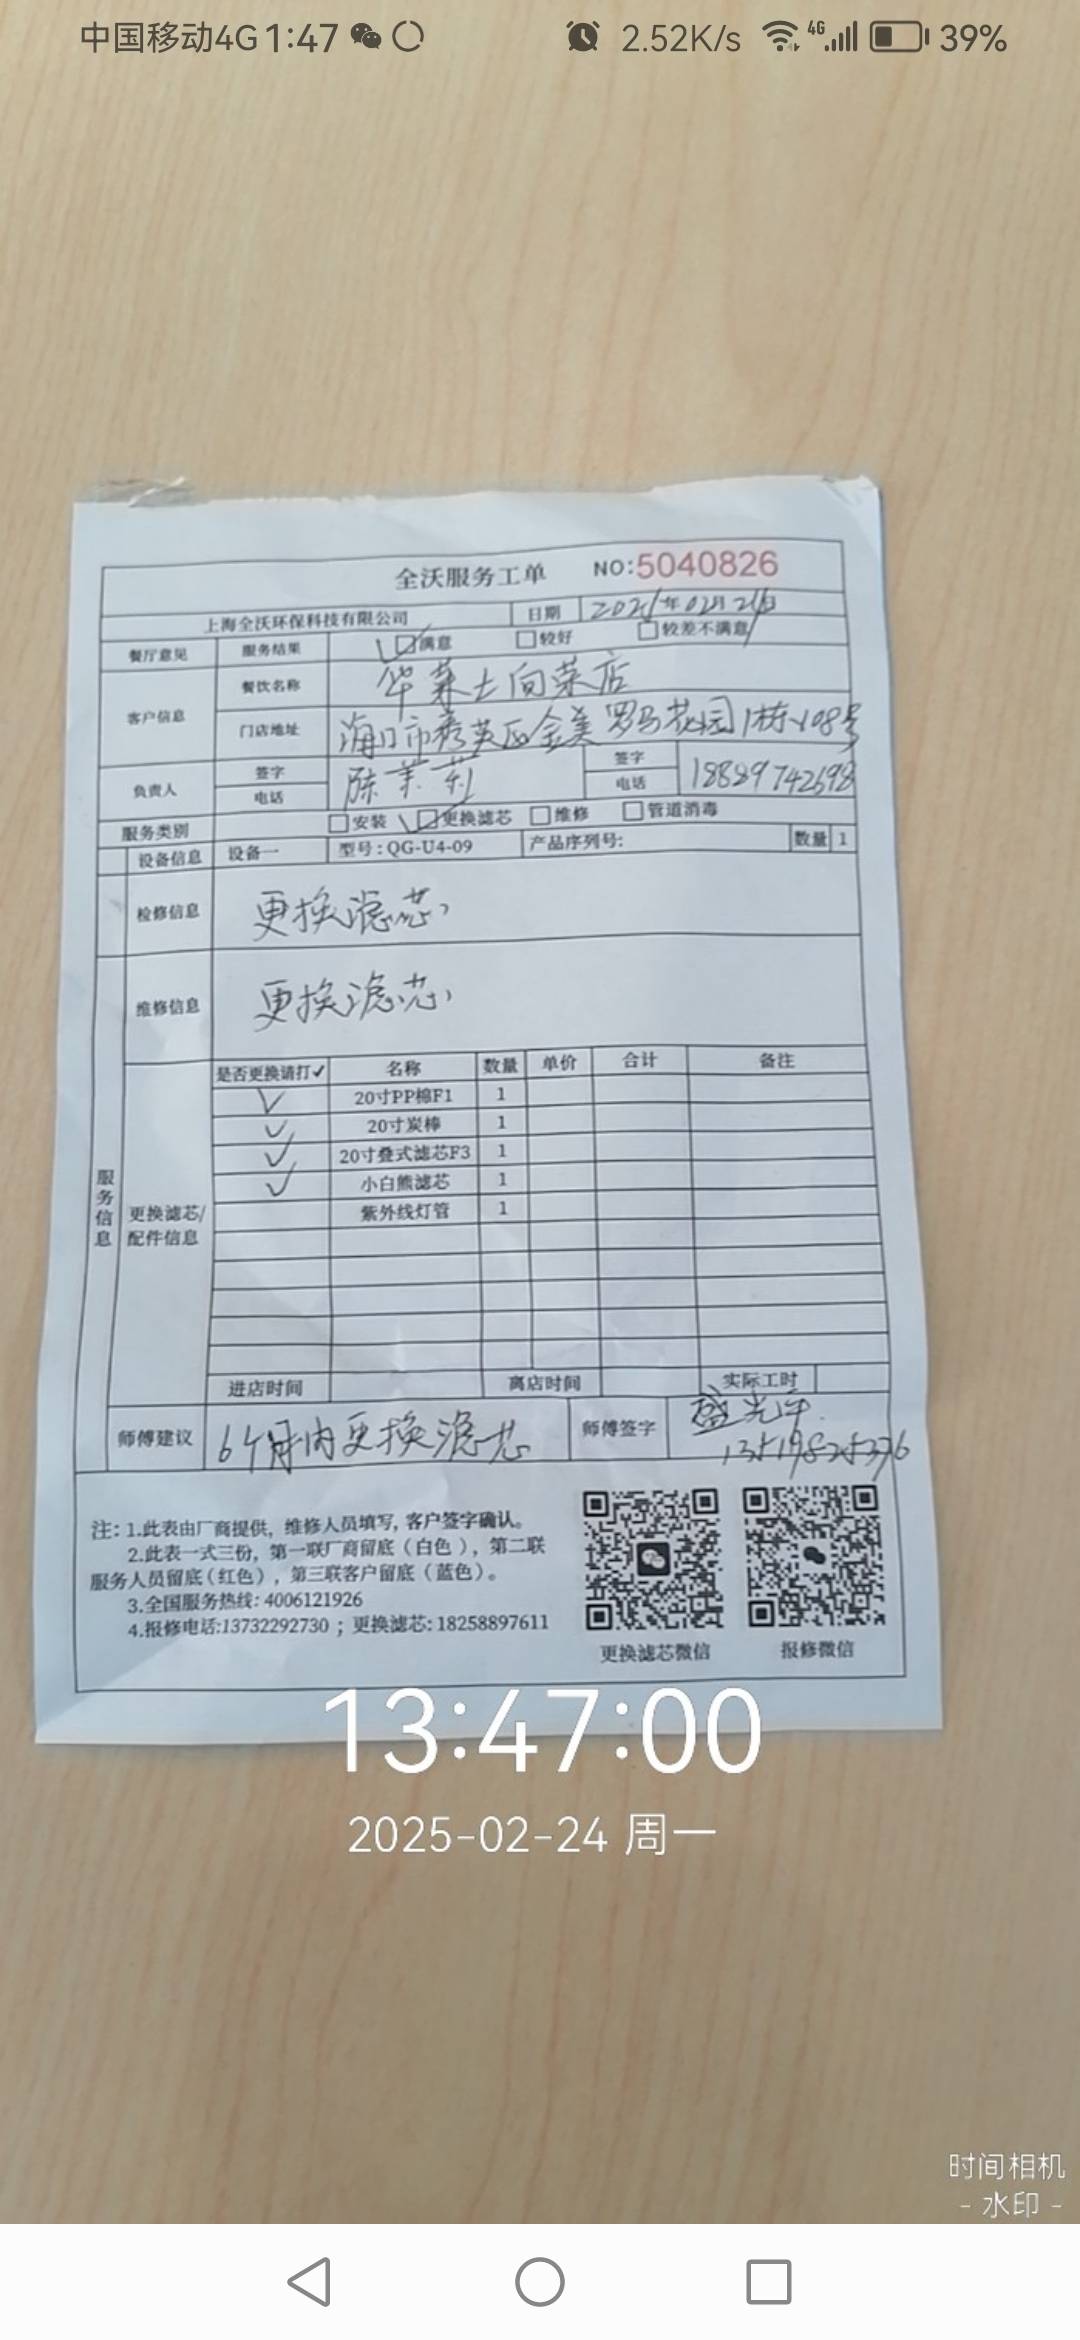 中国移动4G 1:47 2.52K/s 4G 39%
全沃服务工单 NO:5040826
上海全沃环保科技有限公司 日期 2025年02月24日
餐厅意见 服务结果 满意 较好 较差不满意
客户信息 餐饮名称 华莱士向荣店
门店地址 海口市秀英区金美罗马花园1栋108号
负责人 签字 陈茉莉 签字
电话 电话 18889742698
服务类别 安装 更换滤芯 维修 管道消毒
设备信息 设备一 型号:QG-U4-09 产品序列号: 数量 1
检修信息 更换滤芯
维修信息 更换滤芯
服务信息
更换滤芯/配件信息
是否更换请打✓ 名称 数量 单价 合计 备注
✓ 20寸PP棉F1 1
✓ 20寸炭棒 1
✓ 20寸叠式滤芯F3 1
✓ 小白熊滤芯 1
紫外线灯管 1
进店时间 离店时间 实际工时
师傅建议 6个月内更换滤芯 师傅签字 盛光
注: 1.此表由厂商提供, 维修人员填写, 客户签字确认。
2.此表一式三份, 第一联厂商留底（白色）, 第二联
服务人员留底(红色), 第三联客户留底（蓝色）。
3.全国服务热线: 4006121926
4.报修电话:13732292730 ; 更换滤芯: 18258897611
更换滤芯微信 报修微信
13:47:00
2025-02-24 周一
时间相机
- 水印 -